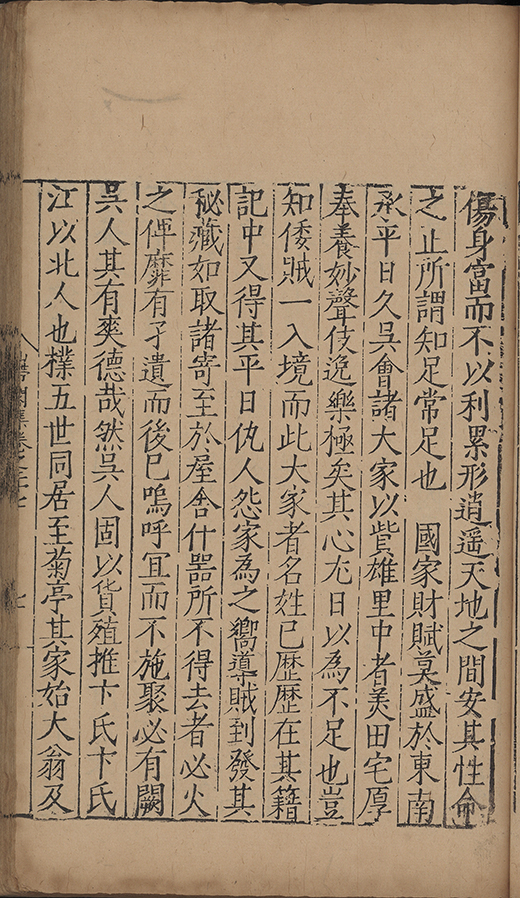 傷身富而不以利累形逍遥天地之間安其性命
之止所謂知足常足也　國家財賦莫盛於東南
承平日久吳會諸大家以貲雄里中者美田宅厚
奉養妙聲伎逸樂極矣其心尢日以為不足也豈
知倭賊一入境而此大家者名姓已歷歷在其籍
記中又得其平日仇人怨家為之嚮導賊到發其
秘藏如取諸寄至於屋舍什噐所不得去者必火
之俾靡有孑遺而後已嗚呼冝而不施聚必有闕
吳人其有爽德哉然吳人固以貨殖推卞氏卞氏
江以北人也樸五世同居至菊亭其家始大翁及